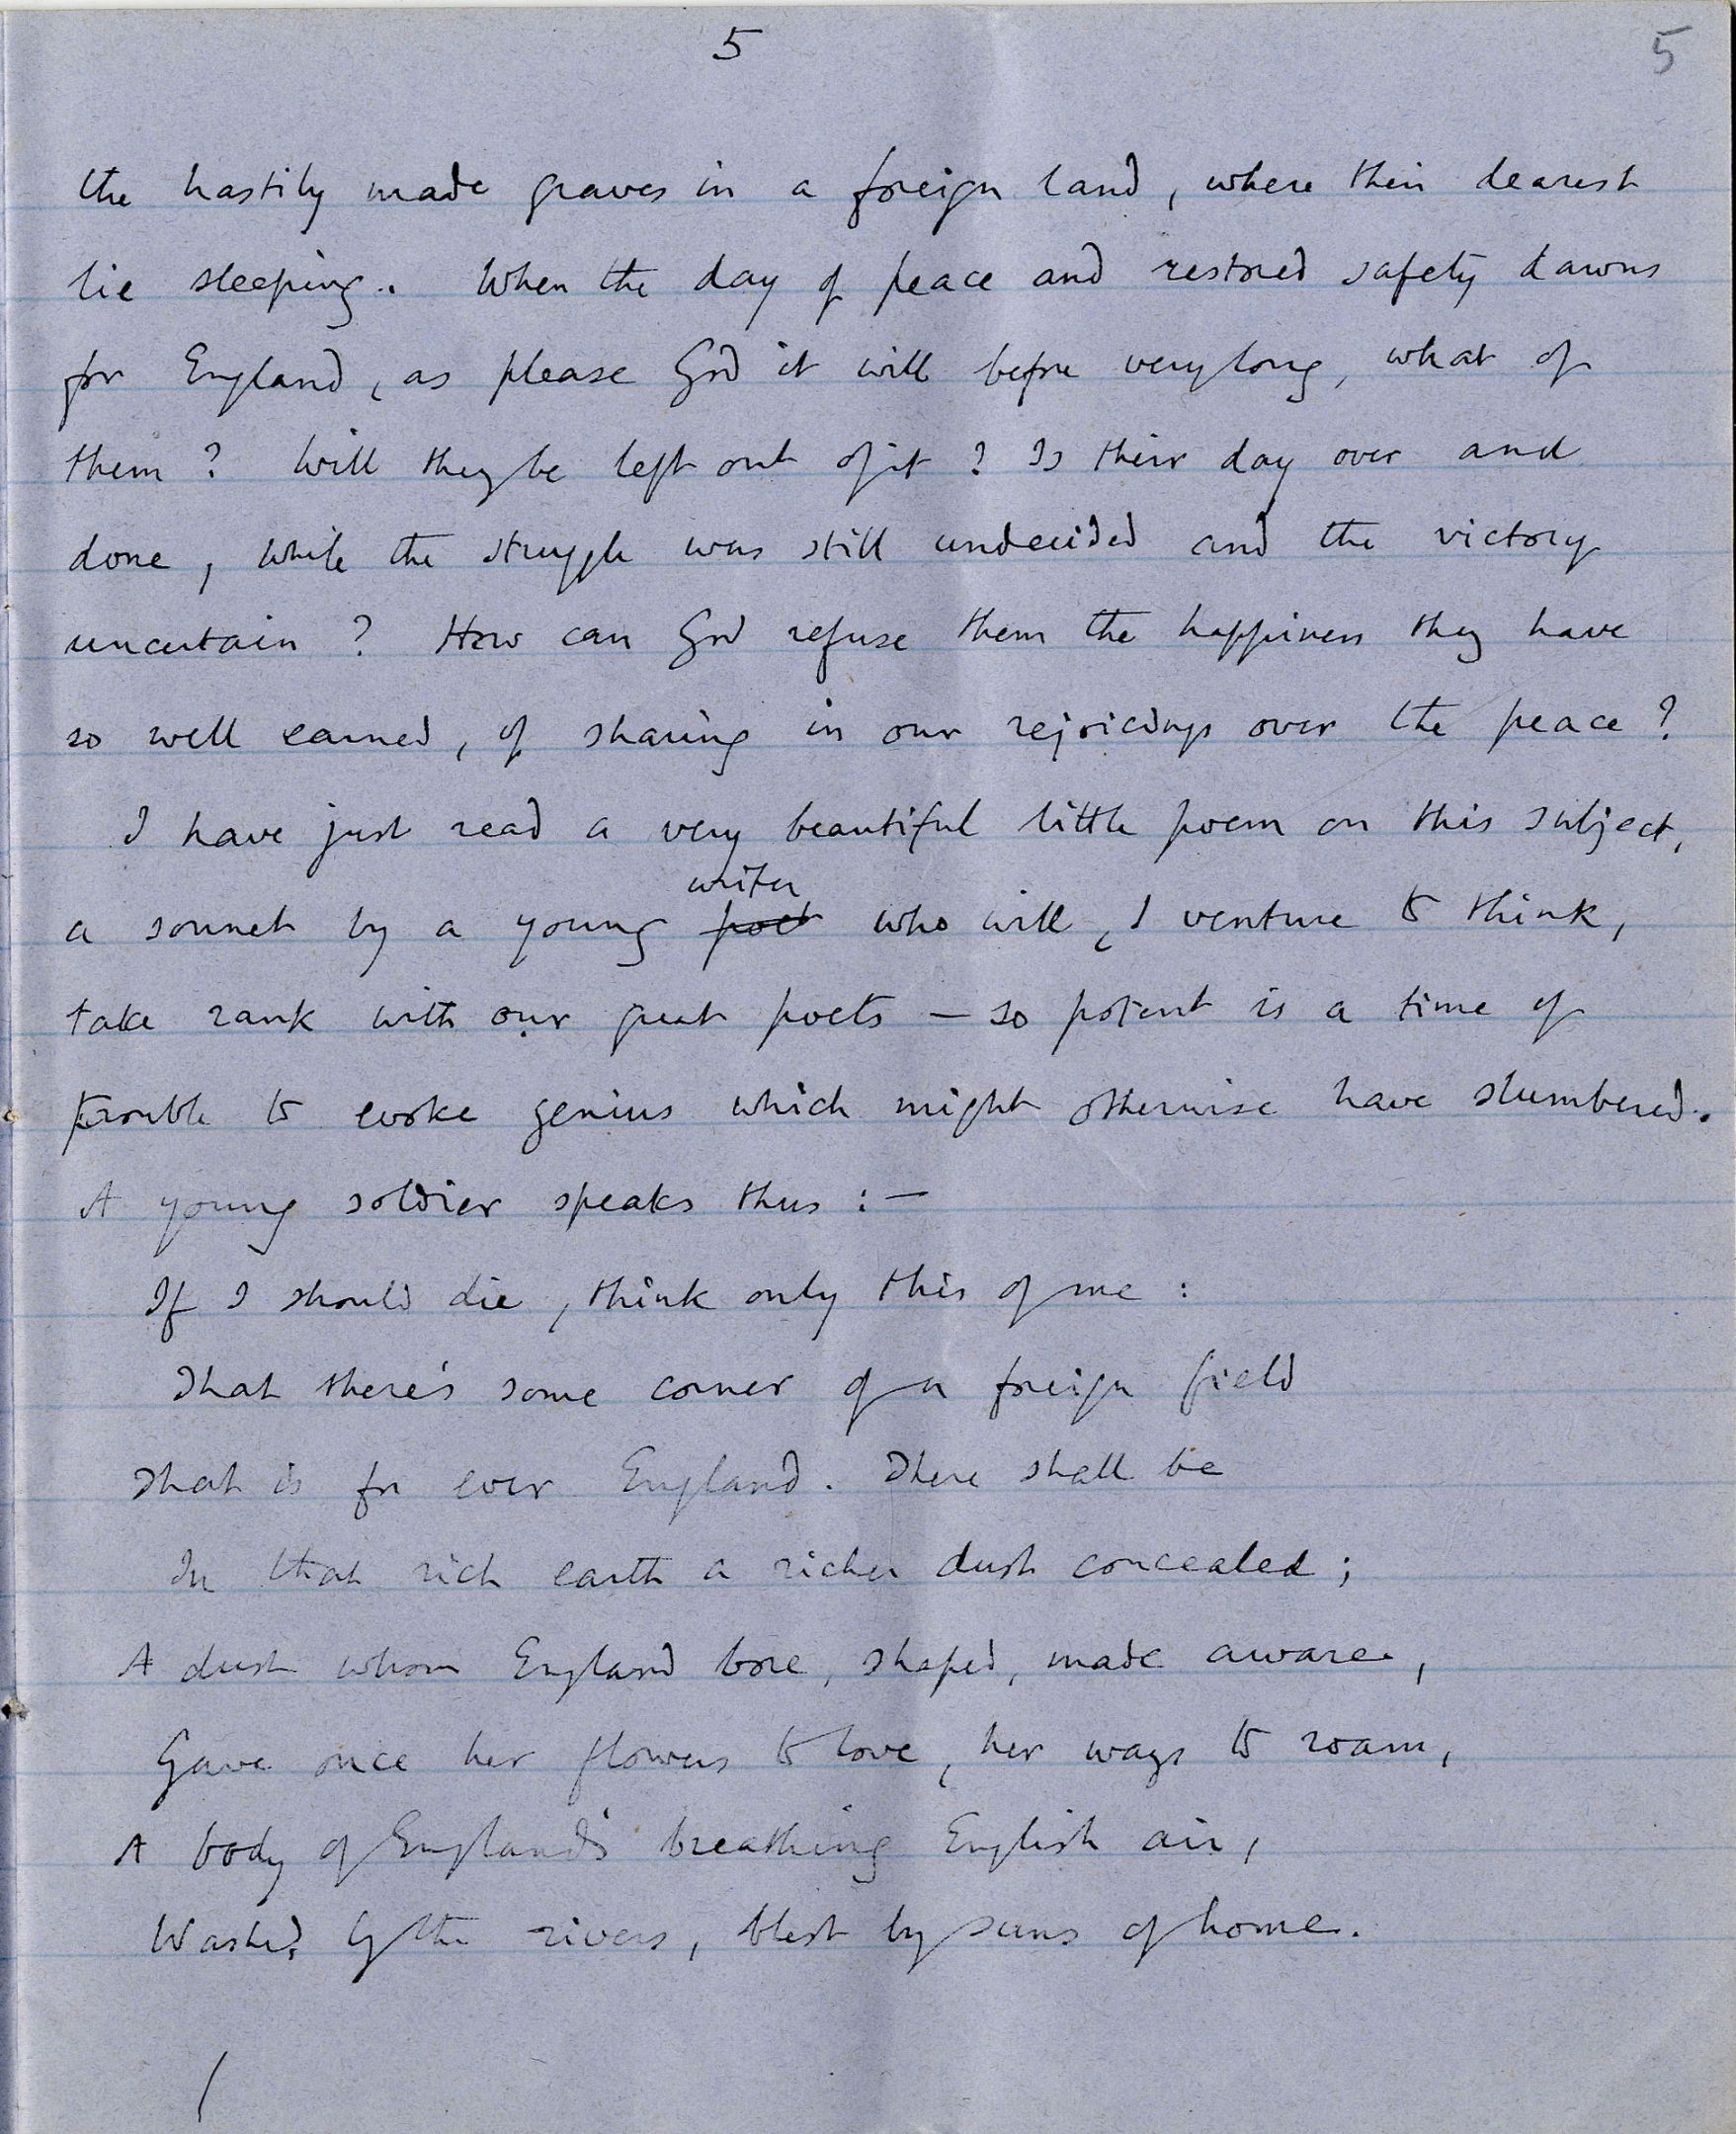 5 5
the hastily made graves in a foreign land, where their dearest
lie sleeping. When the day of peace and restored safety dawns
for England, as please God it will before very long, what of
them? Will they be left out of it? Is their day over and
done, while the struggle was still undecided and the victory
uncertain? How can God refuse them the happiness they have
so well earned, of sharing in our rejoicings over the peace?
I have just read a very beautiful little poem on this subject,
writer
a sonnet by a young poet who will, I venture to think,
take rank with our great poets — so potent is a time of
trouble to evoke genius which might otherwise have slumbered.
A young soldier speaks thus :—
If I should die, think only this of me :
That there's some corner of a foreign field
That is for ever England. There shall be
In that rich earth a richer dust concealed;
A dust whom England bore, shaped, made aware,
Gave once her flowers to love, her ways to roam,
A body of England's breathing English air,
Washed by the rivers, blest by suns of home.